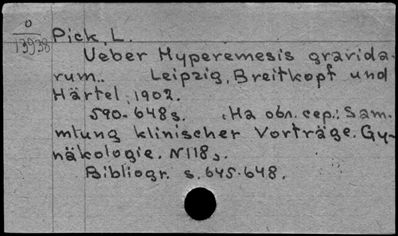 0
13938
Pick, L.
Ueber Hyperemesis gravida-
rum.. Leipzig, Breitkopf und
Härtel, 1902.
590-648s. На обл. сер.: Sam-
mlung klinischer Vorträge. Gy-
näkologie. N118.
Bibliogr. s. 645-648.